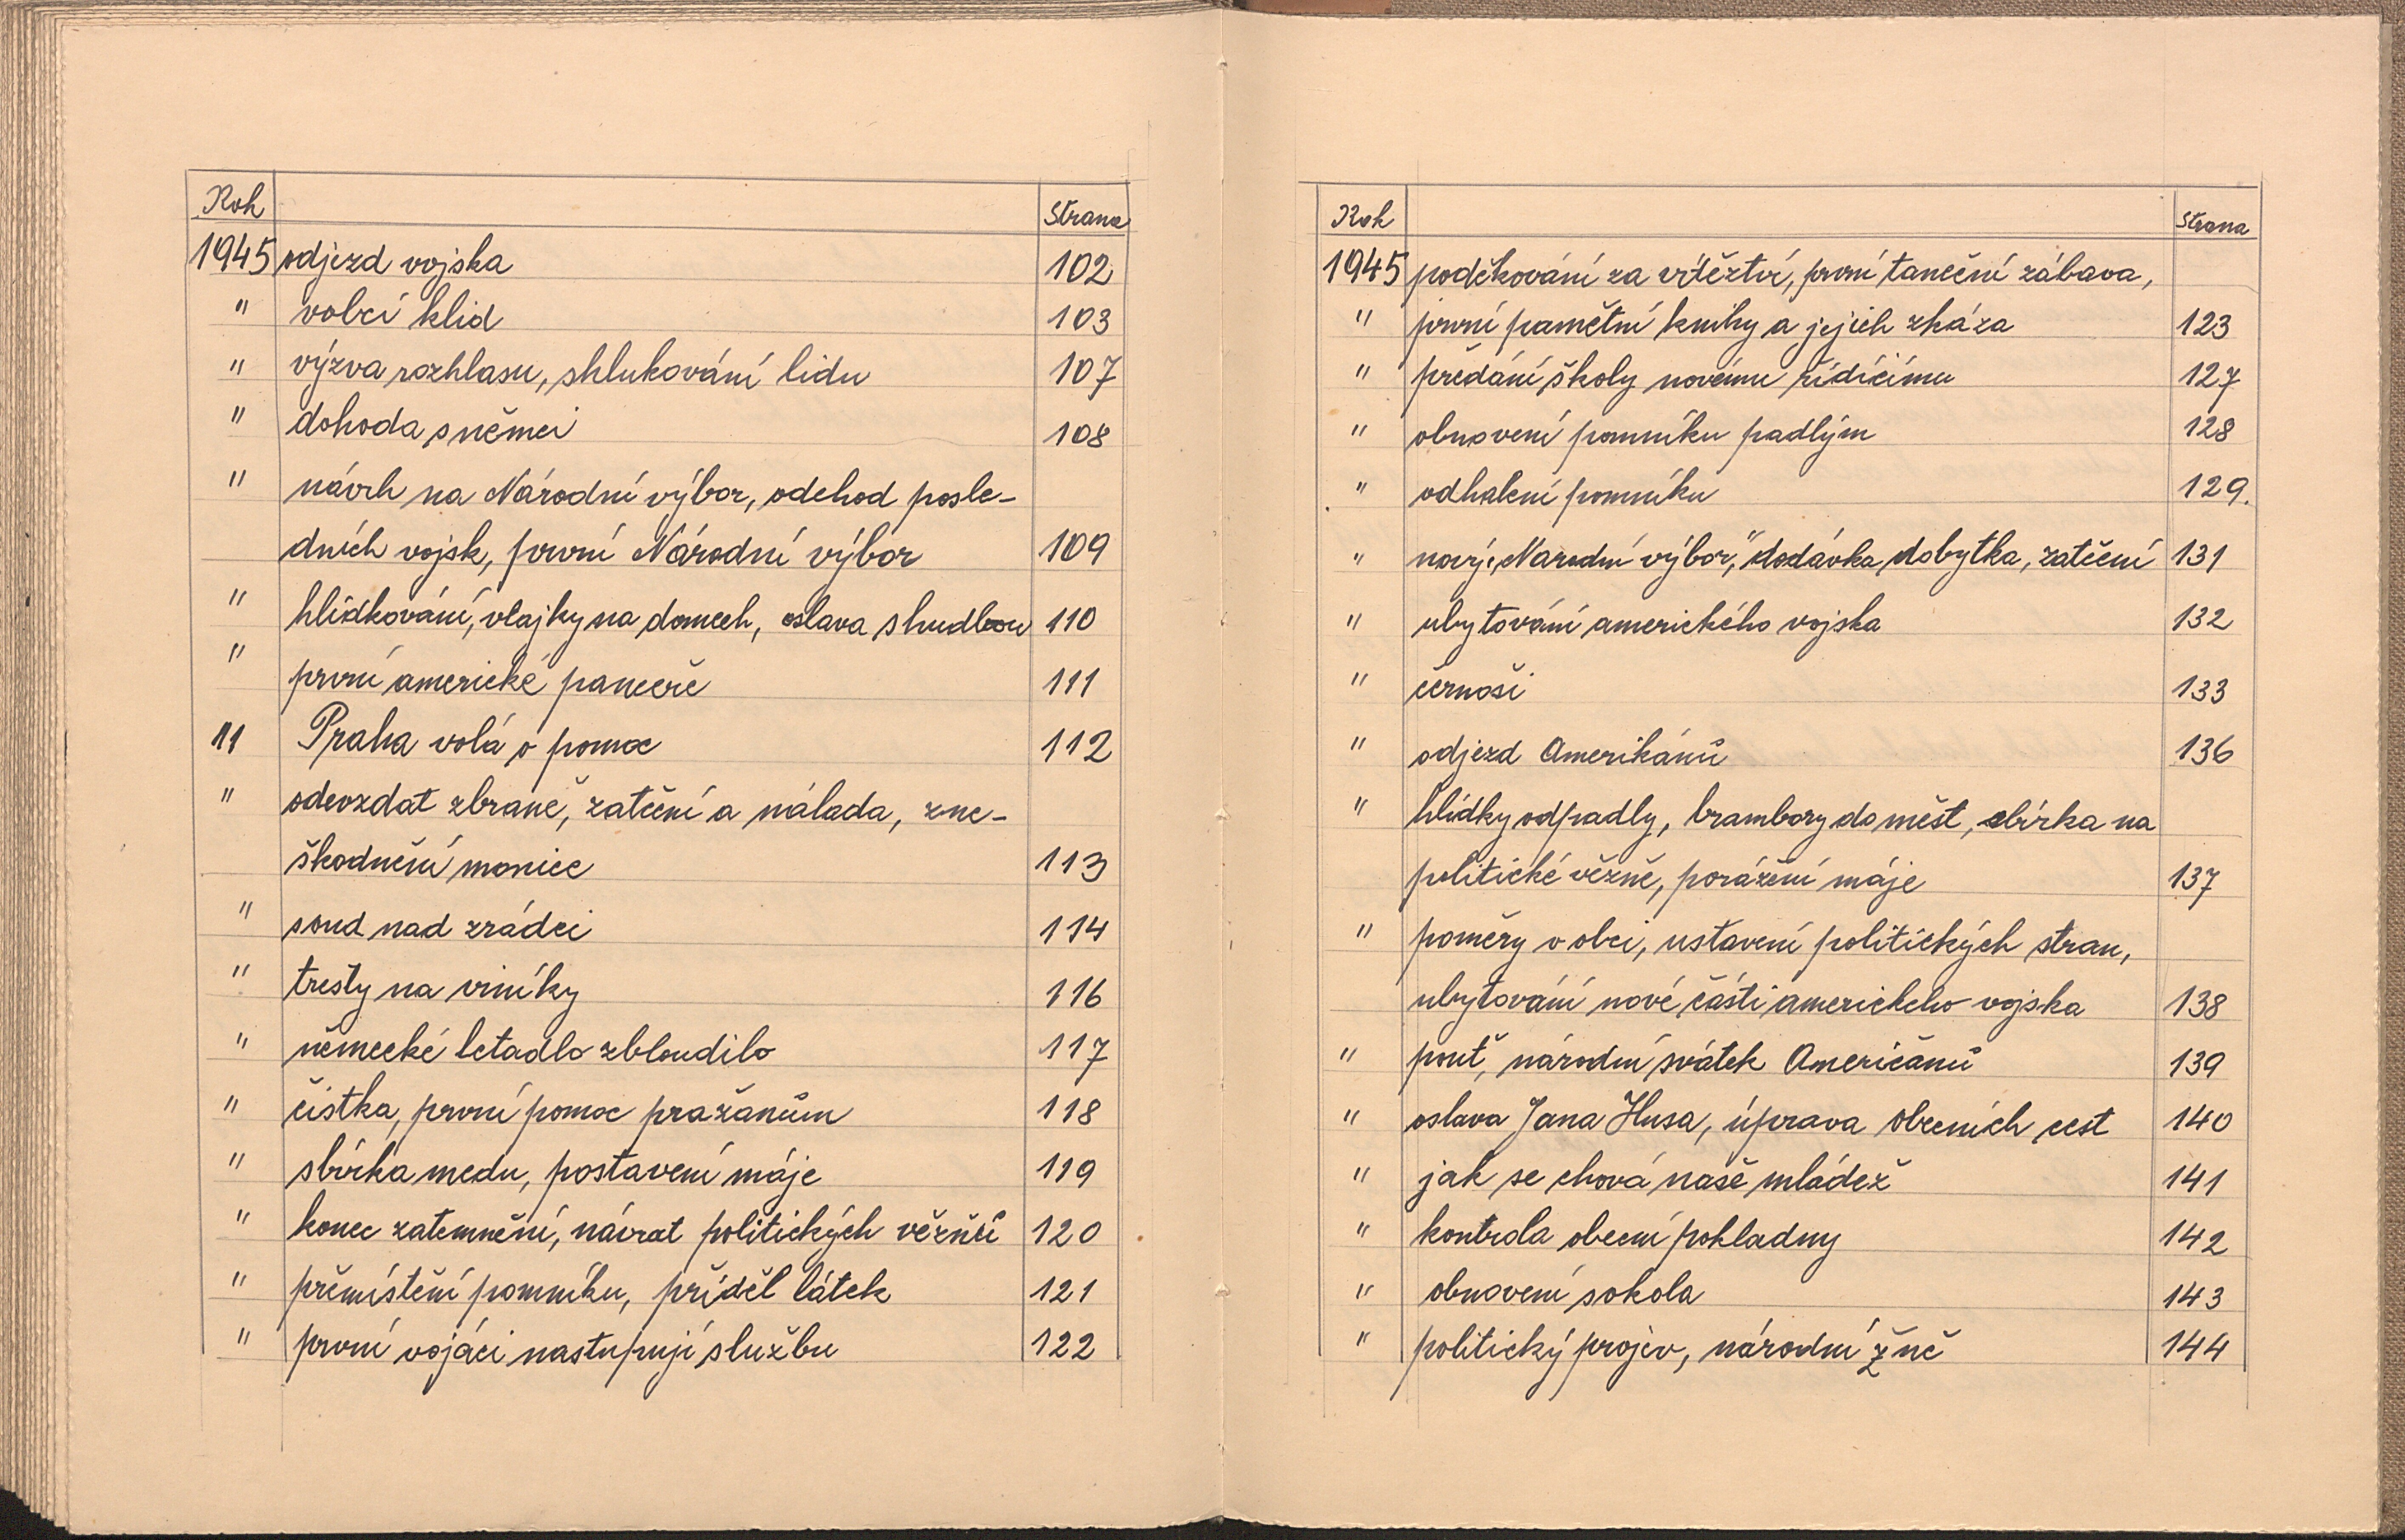 Rok Strana
1945 odjezd vojska 102
" volčí klid 103
" výzva rozhlasu, shlukování lidu 107
" dohoda s němci 108
" návrh na Národní výbor, odchod posle-
dních vojsk, první Národní výbor 109
" hlídkování, vlajky na domech, oslava s hudbou 110
" první americké pancéře 111
" Praha volá o pomoc 112
" odevzdat zbraně, zatčení a nálada, zne-
škodnění monice 113
" soud nad zrádci 114
" tresty na viníky 116
" německé letadlo zbloudilo 117
" čistka, první pomoc pražanům 118
" sbírka medu, postavení máje 119
" konec zatemnění, návrat politických věžňů 120
" přemístění pomníku, příděl látek 121
" první vojáci nastupují službu 122
Rok Strana
1945 poděkování za vítěztví, první taneční zábava,
" první pamětní knihy a jejich zkáza 123
" předání školy novému řídícímu 127
" obnovení pomníku padlým 128
" odhalení pomníku 129.
" nový „Narodní výbor," dodávka dobytka, zatčení 131
" ubytování amerického vojska 132
" černoši 133
" odjezd Amerikánů 136
" hlídky odpadly, brambory do měst, sbírka na
politické vězně, porážení máje 137
" poměry v obci, ustavení politických stran,
ubytování nové části amerického vojska 138
" pouť, národní svátek Američanů 139
" oslava Jana Husa, úprava obecních cest 140
" jak se chová naše mládež 141
" kontrola obecní pokladny 142
" obnovení sokola 143
" politický projev, národní žně 144